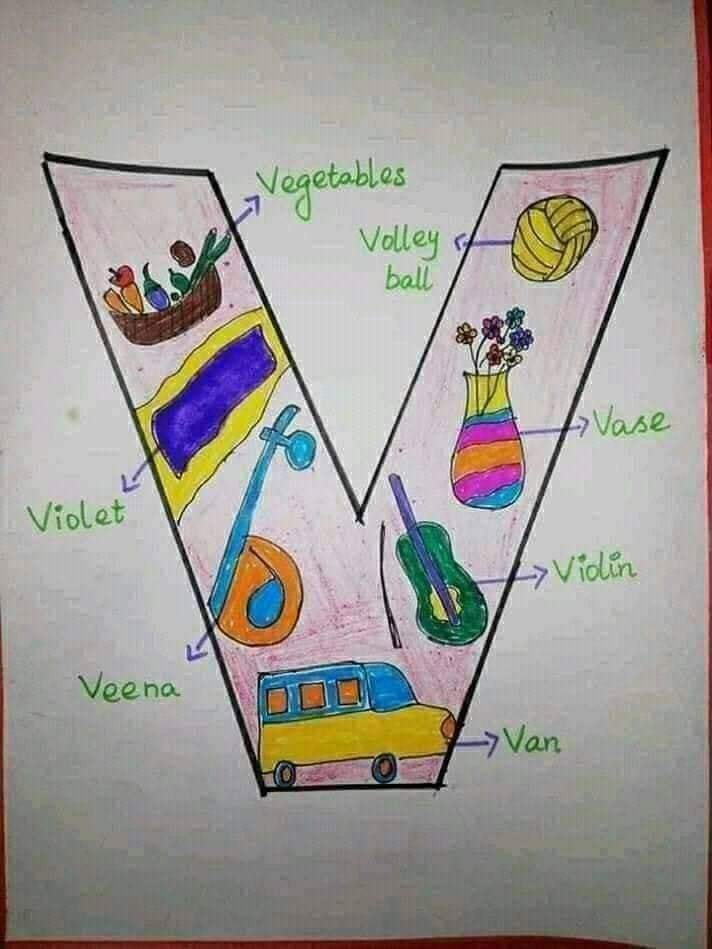 Vegetables
Volley
ball
Vase
Violet
Violin
Veena
Van